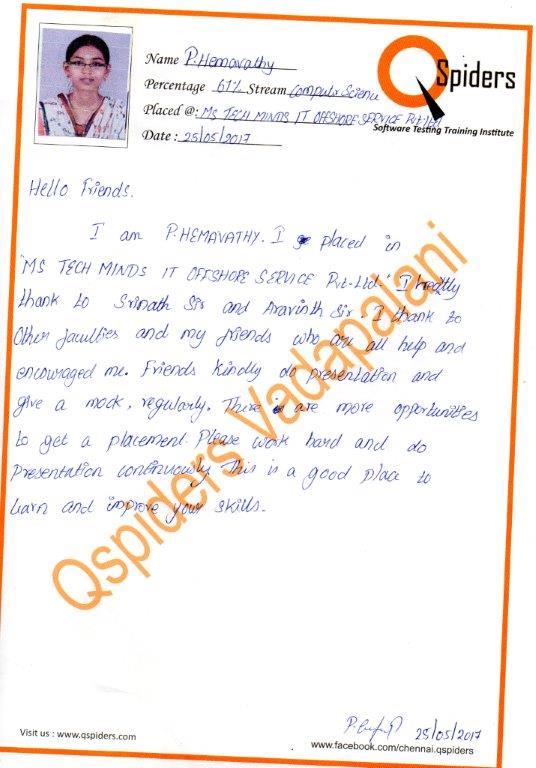 Name P.Hemavathy
Percentage 61% Stream Computer Science
Placed @: MS TECH MINDS IT OFFSHORE SERVICE Pvt.ltd
Date : 25/05/2017
QSpiders
Software Testing Training Institute
Hello Friends.
I am P.HEMAVATHY. I placed in
"MS TECH MINDS IT OFFSHORE SERVICE Pvt.Ltd." I heartly
thank to Srinath Sir and Aravinth Sir. I thank to
Other faculties and my friends who are all help and
encouraged me. Friends kindly do presentation and
give a mock, regularly. There are more opportunities
to get a placement. Please work hard and do
presentation continuously This is a good place to
learn and improve your skills.
Qspiders Vadapalani
25/05/2017
Visit us : www.qspiders.com
www.facebook.com/chennai.qspiders